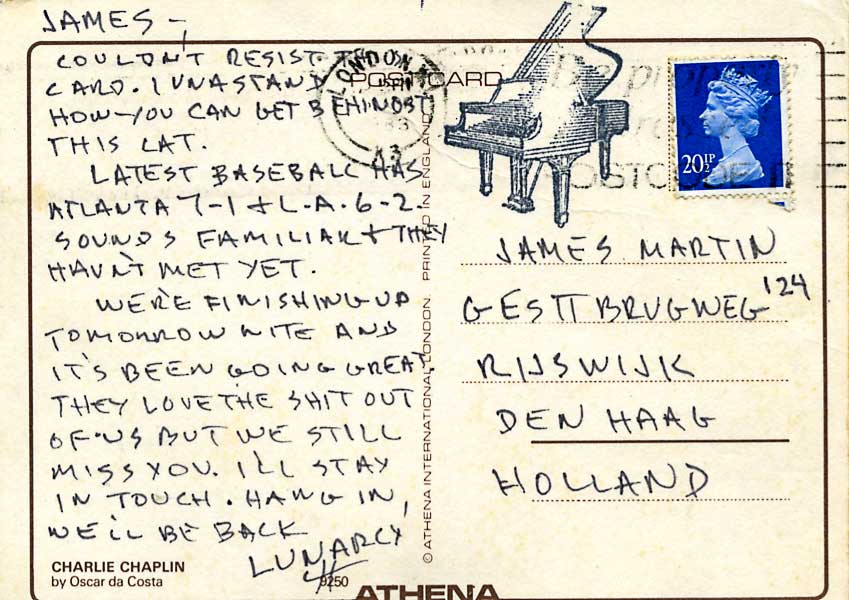 JAMES -
COULDN'T RESIST THE
CARD. I UNASTAND
HOW YOU CAN GET BEHINDST
THIS CAT.
LATEST BASEBALL HAS
ATLANTA 7-1 + L.A. 6-2.
SOUNDS FAMILIAR + THEY
HAVN'T MET YET.
WE'RE FINISHING UP
TOMORROW NITE AND
IT'S BEEN GOING GREAT.
THEY LOVE THE SHIT OUT
OF US BUT WE STILL
MISS YOU. I'LL STAY
IN TOUCH. HANG IN,
WE'LL BE BACK
LUNARCY
CHARLIE CHAPLIN
by Oscar da Costa
9250
ATHENA
© ATHENA INTERNATIONAL, LONDON. PRINTED IN ENGLAND
POSTCARD
LONDON
83
A3
Be
POSTCODE IT
20½P
JAMES MARTIN
GESTTBRUGWEG '124
RIJSWIJK
DEN HAAG
HOLLAND